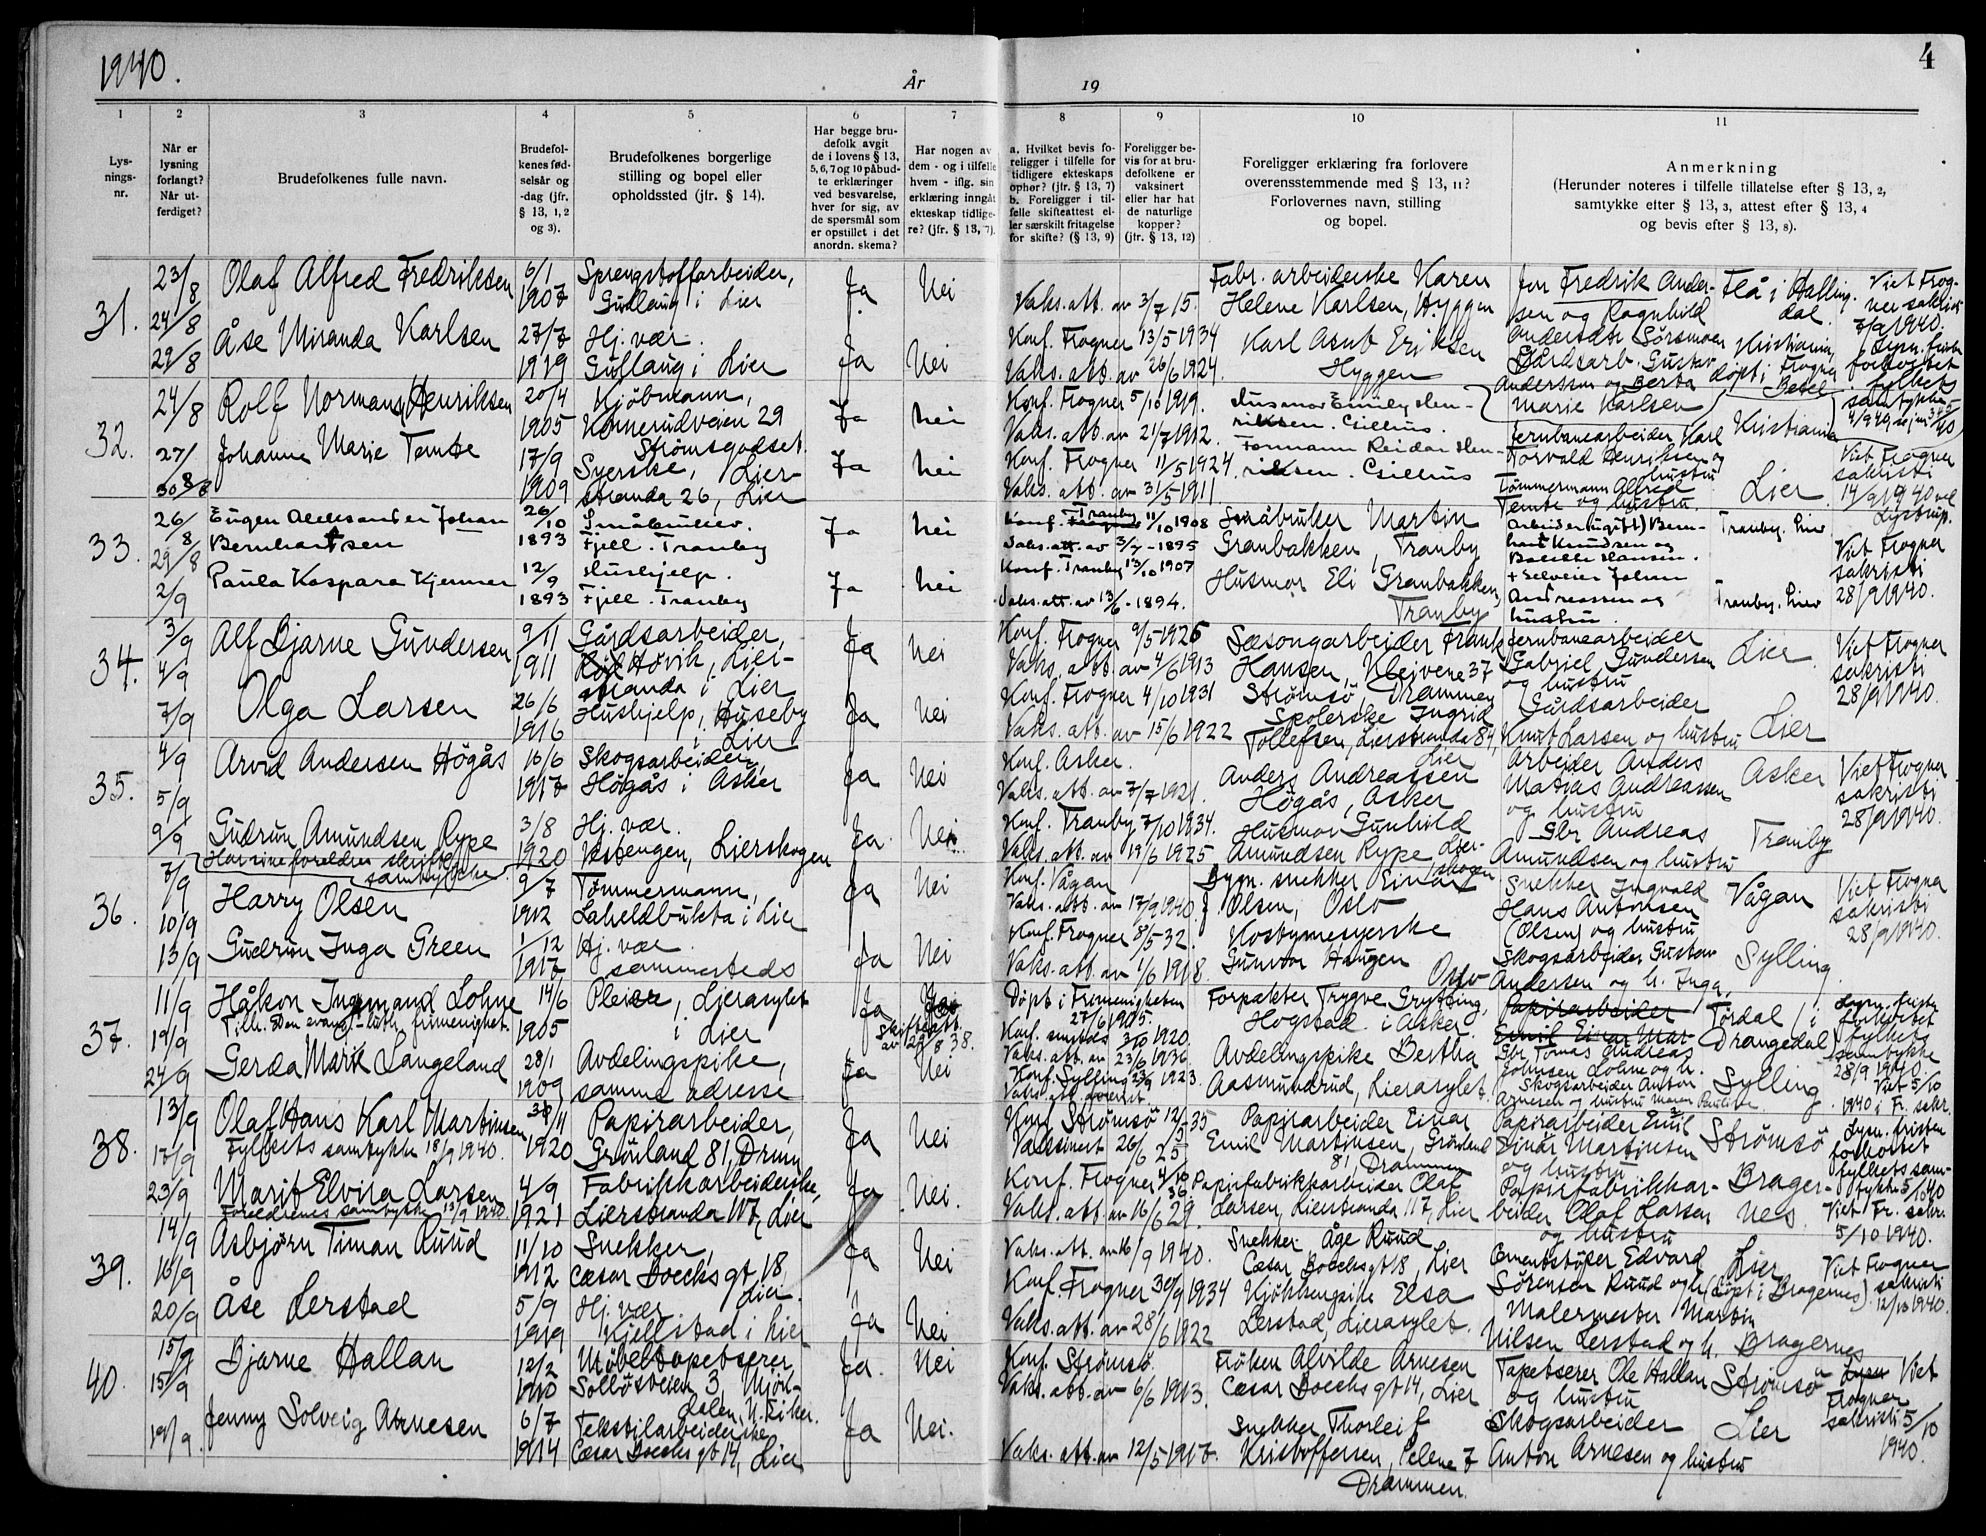 1940.
År
19
4
1
2
3
4
5
6
7
8
9
10
11
Lys-
nings-
nr.
Når er
lysning
forlangt?
Når ut-
ferdiget?
Brudefolkenes fulle navn.
Brudefol-
kenes fød-
selsår og
-dag (jfr.
§ 13, 1, 2
og 3).
Brudefolkenes borgerlige
stilling og bopel eller
opholdssted (jfr. § 14).
Har begge bru-
defolk avgit
de i lovens § 13,
5, 6, 7 og 10 påbud-
te erklæringer
ved besvarelse,
hver for sig, av
de spørsmål som
er opstillet i det
anordn. skema?
Har nogen av
dem - og i tilfelle
hvem - iflg. sin
erklæring inngått
ekteskap tidlige-
re? (jfr. § 13, 7).
a. Hvilket bevis fo-
religger i tilfelle for
tidligere ekteskaps
ophør? (jfr. § 13, 7)
b. Foreligger i til-
felle skifteattest el-
ler særskilt fritagelse
for skifte? (§ 13, 9)
Foreligger be-
vis for at bru-
defolkene er
vaksinert
eller har hat
de naturlige
kopper?
(jfr. § 13, 12)
Foreligger erklæring fra forlovere
overensstemmende med § 13, 11?
Forlovernes navn, stilling
og bopel.
Anmerkning
(Herunder noteres i tilfelle tillatelse efter § 13, 2,
samtykke efter § 13, 3, attest efter § 13, 4
og bevis efter § 13, 8).
31.
23/8
24/8
29/8
Olaf Alfred Fredriksen
6/1
1907
Sprengstoffarbeider,
Gullaug i Lier
Ja
Nei
Vaks. att. av 3/7 15.
Konf. Frogner 13/5 1934
Vaks. att. av 26/6 1924.
Fabr. arbeiderske Karen
Helene Karlsen, Hyggen
Karl Eriksen
Hyggen
Fredrik Ander-
sen og Ragnhild
Gårdsarb. Gustav
Anderssen og Berta
Marie Karlsen
Flå i Halling-
dal.
Kristiania,
døpt i Frogner
Viet Frog-
ner sakristi
7/9 1940.
Lysn. friste
forkortet
fylkets
samtykke
Åse Miranda Karlsen
27/7
1919
Hj. vær.
Gullaug i Lier
Ja
Nei
32.
24/8
27/8
30/8
Rolf Normann Henriksen
20/4
1905
Kjøbmann,
Konnerudveien 29
Strømsgodset
Ja
Nei
Konf. Frogner 5/10 1919.
Vaks. att. av 21/7 1912.
Konf. Frogner 11/5 1924
Vaks. att. av 31/5 1911.
Husmor Emily Hen-
riksen. Gilhus.
Formann Reidar Hen-
riksen Gilhus
Jernbanearbeider Karl
Torvald Henriksen og
hustru
Tømmermann Alfred
Temte og hustru
Kristiania
Lier
Viet Frogner
sakristi
14/9 1940
Johanne Marie Temte
17/9
1909
Syerske, Lier-
stranda 26, Lier
Ja
Nei
33.
26/8
29/8
2/9
Eugen Aleksander Johan
Bernhartsen
26/10
1893
Småbruker.
Fjell. Tranby
Ja
Nei
Konf. Tranby 11/10 1908
Vaks. att. av 3/7 - 1895
Konf. Tranby 13/10 1907
Vaks. att. av 13/6 - 1894.
Småbruker Martin
Granbakken, Tranby
Husmor Eli Granbakken,
Tranby
Arbeider (ugift) Bern-
hart Knudsen og
Hansen.
+ Selveier Johan
Andreassen og
hustru.
Tranby. Lier
Tranby. Lier
Viet Frogner
sakristi
28/9 1940.
Paula Kaspara Kjemner
12/9
1893
Hushjelp.
Fjell. Tranby
Ja
Nei
34.
3/9
4/9
7/9
Alf Bjarne Gundersen
9/11
1911
Gårdsarbeider,
Høvik, Lier-
stranda i Lier
Ja
Nei
Konf. Frogner 9/5 1926
Vaks. att. av 4/6 1913
Konf. Frogner 4/10 1931
Vaks. att. av 15/6 1922
Sæsongarbeider Frank
Hansen, Kleivene 37
Strømsø Drammen
Spolerske Ingrid
Tollefsen, Lierstranda 84,
Lier
Jernbanearbeider
Gabriel Gundersen
og hustru
Gårdsarbeider
Knut Larsen og hustru
Lier
Lier
Viet Frogner
sakristi
28/9 1940.
Olga Larsen
26/6
1916
Hushjelp, Huseby
i Lier
Ja
Nei
35.
4/9
5/9
9/9
Arvid Andersen Högås
16/6
1917
Skogsarbeider,
Högås i Asker
Ja
Nei
Konf. Asker.
Vaks. att. av 7/7 1921.
Konf. Tranby 7/10 1934.
Vaks. att. av 19/6 1925
Anders Andreassen
Högås, Asker
Husmor Gunhild
Amundsen Rype Lier-
skogen
Arbeider Anders
Matias Andreassen
og hustru
Gbr Andreas
Amundsen og hustru
Asker
Tranby
Viet Frogner
sakristi
28/9 1940.
Gudrun Amundsen Rype
Har sine foreldres skriftlige
samtykke.
3/8
1920
Hj. vær.
Vestengen, Lierskogen
Ja.
Nei.
36.
7/9
10/9
13/9
Harry Olsen
9/7
1912
Tømmermann,
Laheldbukta i Lier
Ja
Nei
Konf. Vågan
Vaks. att. av 17/9 1940.
Konf. Frogner 8/5 32.
Vaks. att. av 1/6 1918
Bygn. snekker Einar
Olsen, Oslo
Kostymesyerske
Gunvor Haugen
Oslo
Snekker Ingvald
Hans Antonsen
(Olsen) og hustru
Skogsarbeider Gustav
Andersen og h. Inga,
Vågan
Sylling
Viet Frogner
sakristi
28/9 1940.
Gudrun Inga Green
1/12
1917
Hj. vær.
sammesteds
Ja
Nei
37.
11/9
19/9
24/9
Håkon Ingemand Lohne
Tilh. Den evang.-luth. frimenighet.
14/6
1905
Pleier, Lierasylet
i Lier
Ja
Skifteatt.
Døpt i Frimenigheten
27/6 1905.
Konf. smsteds 3/10 1920.
Vaks. att. av 23/6 1936
Konf. Sylling 23/9 1923.
Forpakter Trygve Grytting,
Hogstad i Asker
Avdelingspike Bertha
Aasmundrud, Lierasylet.
Papirarbeider
Emil Einar Mar-
Gbr. Tomas Andreas
Johnsen Lohne og h.
Skogsarbeider Anton
Arnesen og hustru Maren Pauline
Tørdal i
Drangedal
Sylling
Lysn. friste
forkortet
fylkets
samtykke
28/9 1940.
Viet 5/10
1940 i Fr. sakr.
Gerda Marie Langeland
28/1
1909
Avdelingspike,
samme adresse
Ja
Nei
38.
13/9
17/9
23/9
Olaf Hans Karl Martinsen
Fylkets samtykke 18/9 1940.
1920
Papirarbeider,
Grønland 81, Drmn
Ja
Nei
Konf. Strømsø 12/5 35
Vaksinert 26/6 25
Konf. Frogner 4/10 36
Vaks. att. av 16/6 29.
Papirarbeider Einar
Emil Martinsen, Grønland
81, Drammen
Papirfabrikkarbeider Olaf
Larsen, Lierstranda 117, Lier
Papirarbeider Emil
Einar Martinsen
og hustru
Papirfabrikkar-
beider Olaf Larsen
og hustru
Strømsø
Brager-
nes.
Lysn. fristen
forkortet
fylkets sam-
tykke 5/10 40
Viet Fr. sakr.
5/10 1940.
Marit Elvira Larsen
Foreldrenes samtykke 13/9 1940.
4/9
1921
Fabrikkarbeiderske,
Lierstranda 117, Lier
Ja
Nei.
39.
14/9
16/9
20/9
Asbjørn Timan Ruud
11/10
1912
Snekker,
Cæsar Boecks gt. 18,
Lier.
Ja
Nei
Vaks. att. av 16/9 1940.
Konf. Frogner 30/9 1934
Vaks. att. av 28/6 1922
Snekker Åge Ruud
Cæsar Boecks gt 18, Lier
Kjøkkenpike Elsa
Lerstad, Lierasylet.
Cementstøper Edvard
Sørensen Ruud og h.
Malermester Martin
Nilsen Lerstad og h.
Lier
(døpt i Bragernes)
Bragernes
Viet Frogner
sakristi
12/10 1940.
Åse Lerstad
5/9
1919
Hj. vær.
Kjellstad i Lier
Ja
Nei
40.
15/9
15/9
19/9.
Bjarne Hallan
12/2
1910
Møbeltapetserer
Solløsveien 3, Mjøn-
dalen, N. Eiker.
Ja.
Nei
Konf. Strømsø.
Vaks. att. av 6/6 1913.
Vaks. att. av 12/5 1917.
Frøken Alvilde Arnesen
Cæsar Boecks gt 14, Lier
Snekker Thorleif
Kristoffersen,
Drammen.
Tapetserer Ole Hallan
og hustru
Skogsarbeider
Anton Arnesen og hustru
Strømsø
Lier
Viet
Frogner
sakristi 5/10
1940.
Jenny Solveig Arnesen
6/7
1914
Tekstilarbeiderske
Cæsar Boecks gt 14, Lier
Ja
Nei.